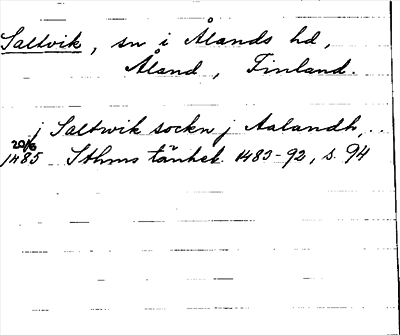 Saltvik, sn i Ålands hd,
Åland, Finland.
j Saltwik sockn j Aalandh, ..
20/6
1485 Sthms tänkeb. 1483-92, s. 94